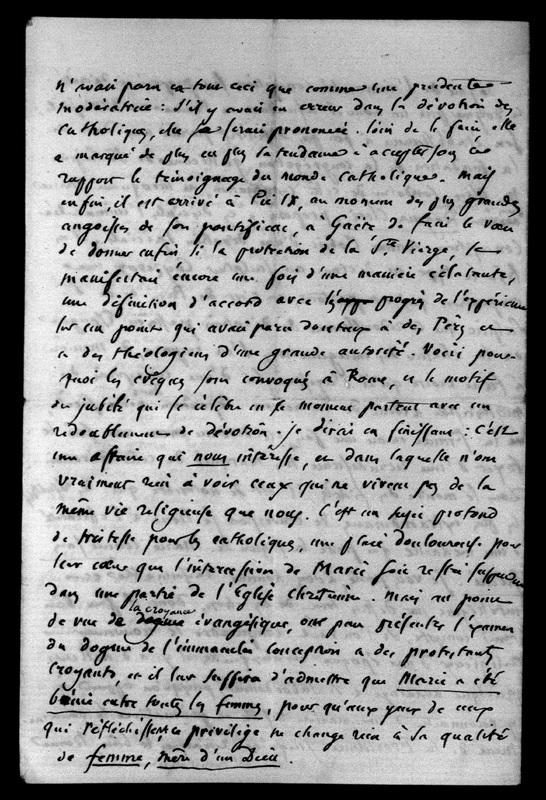 n'avait paru en tout ceci que comme une prudente
modératrice : s'il y avait eu erreur dans la dévotion des
catholiques, elle se serait prononcée. loin de le faire, elle
a marqué de plus en plus sa tendance à accepter sous ce
rapport le témoignage du monde catholique. Mais
enfin, il est arrivé à Pie IX, au moment des plus grandes
angoisses de son pontificat, à Gaëte de faire le vœu
de donner enfin si la protection de la Ste. Vierge, se
manifestait encore une fois d'une manière éclatante,
une définition d'accord avec les progrès de l'expérience
sur un point qui avait paru douteux à des Pères et
a des théologiens d'une grande autorité. Voici pour-
quoi les évêques sont convoqués à Rome, et le motif
du jubilé qui se célèbre en ce moment partout avec un
redoublement de dévotion. je dirai en finissant : C'est
une affaire qui nous intéresse, et dans laquelle n'ont
vraiment rien à voir ceux qui ne vivent pas de la
même vie religieuse que nous. C'est un sujet profond
de tristesse pour les catholiques, une plaie douloureuse pour
leur cœur que l'intercession de Marie soit restée suspendue
dans une partie de l'Eglise chrétienne. Mais au point
de vue de la croyance évangélique, on peut présenter l'examen
du dogme de l'immaculée conception a des protestants
croyants, et il leur suffira d'admettre que Marie a été
bénie entre toutes les femmes, pour qu'aux yeux de ceux
qui réfléchissent, ce privilège ne change rien à sa qualité
de femme, mère d'un Dieu.